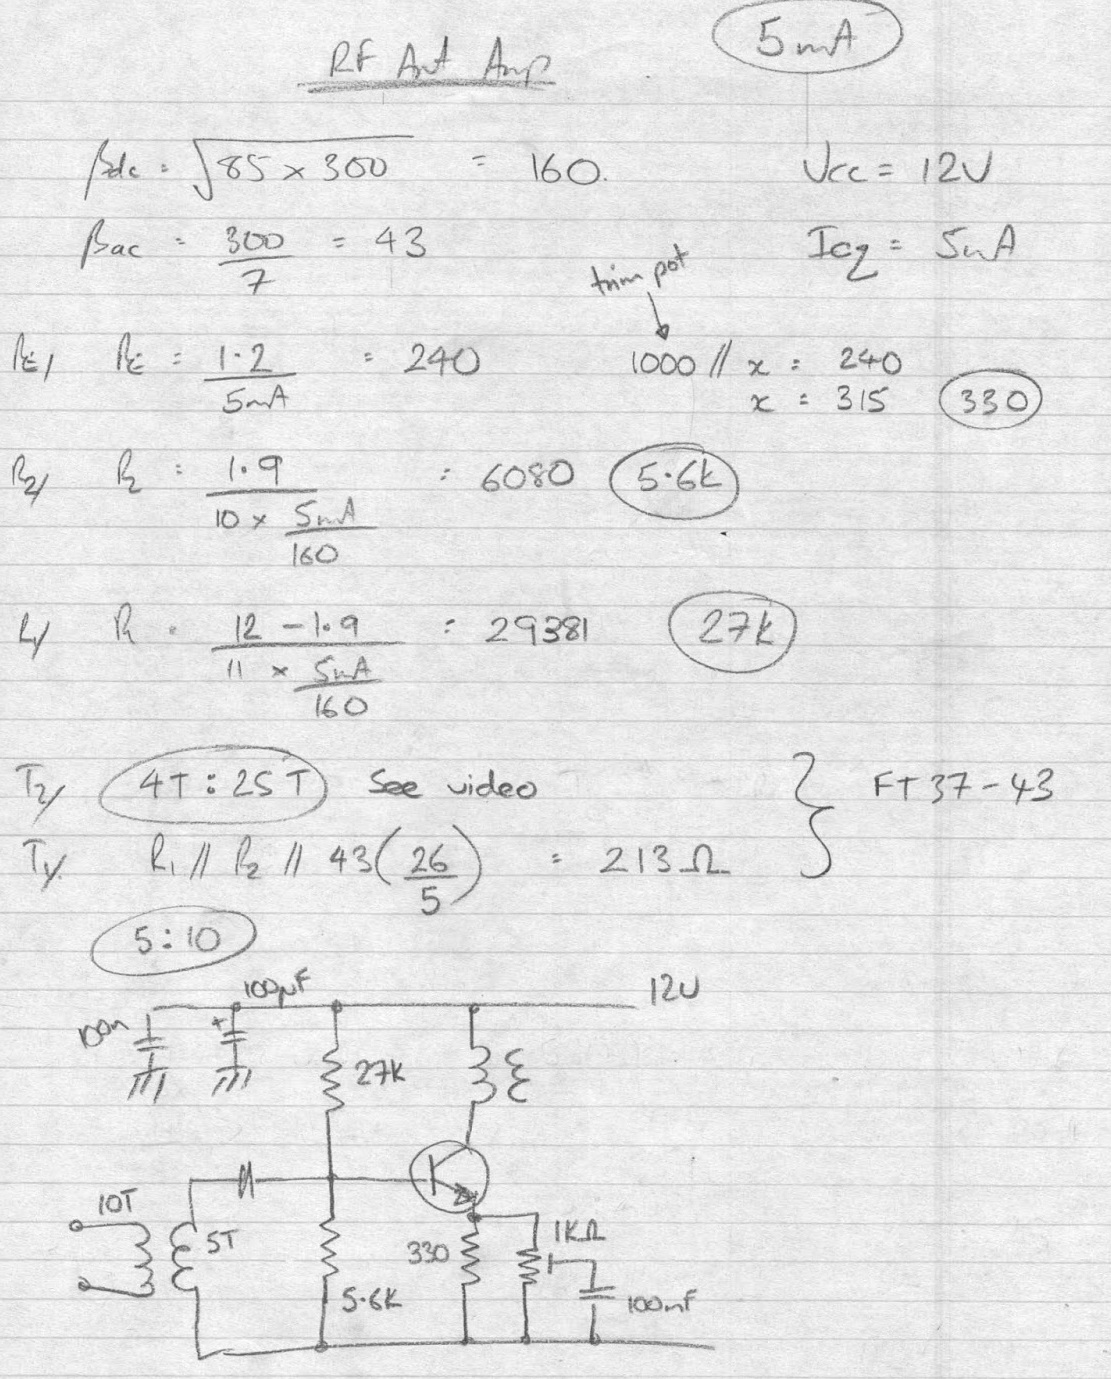 5mA
RF Ant Amp
βdc = √85 × 300 = 160.
Vcc = 12V
βac = 300/7 = 43
Icq = 5mA
trim pot
RE/ RE = 1.2/5mA = 240
1000 // x = 240
x = 315 330
R2/ R2 = 1.9/(10 × 5mA/160) = 6080 5.6k
R1/ R1 = (12 - 1.9)/(11 × 5mA/160) = 29381 27k
T2/ 4T : 25T See video
FT37-43
T1/ R1 // R2 // 43(26/5) = 213Ω
5:10
100µF
12V
100n
27K
10T
5T
5.6K
330
1KΩ
100nF